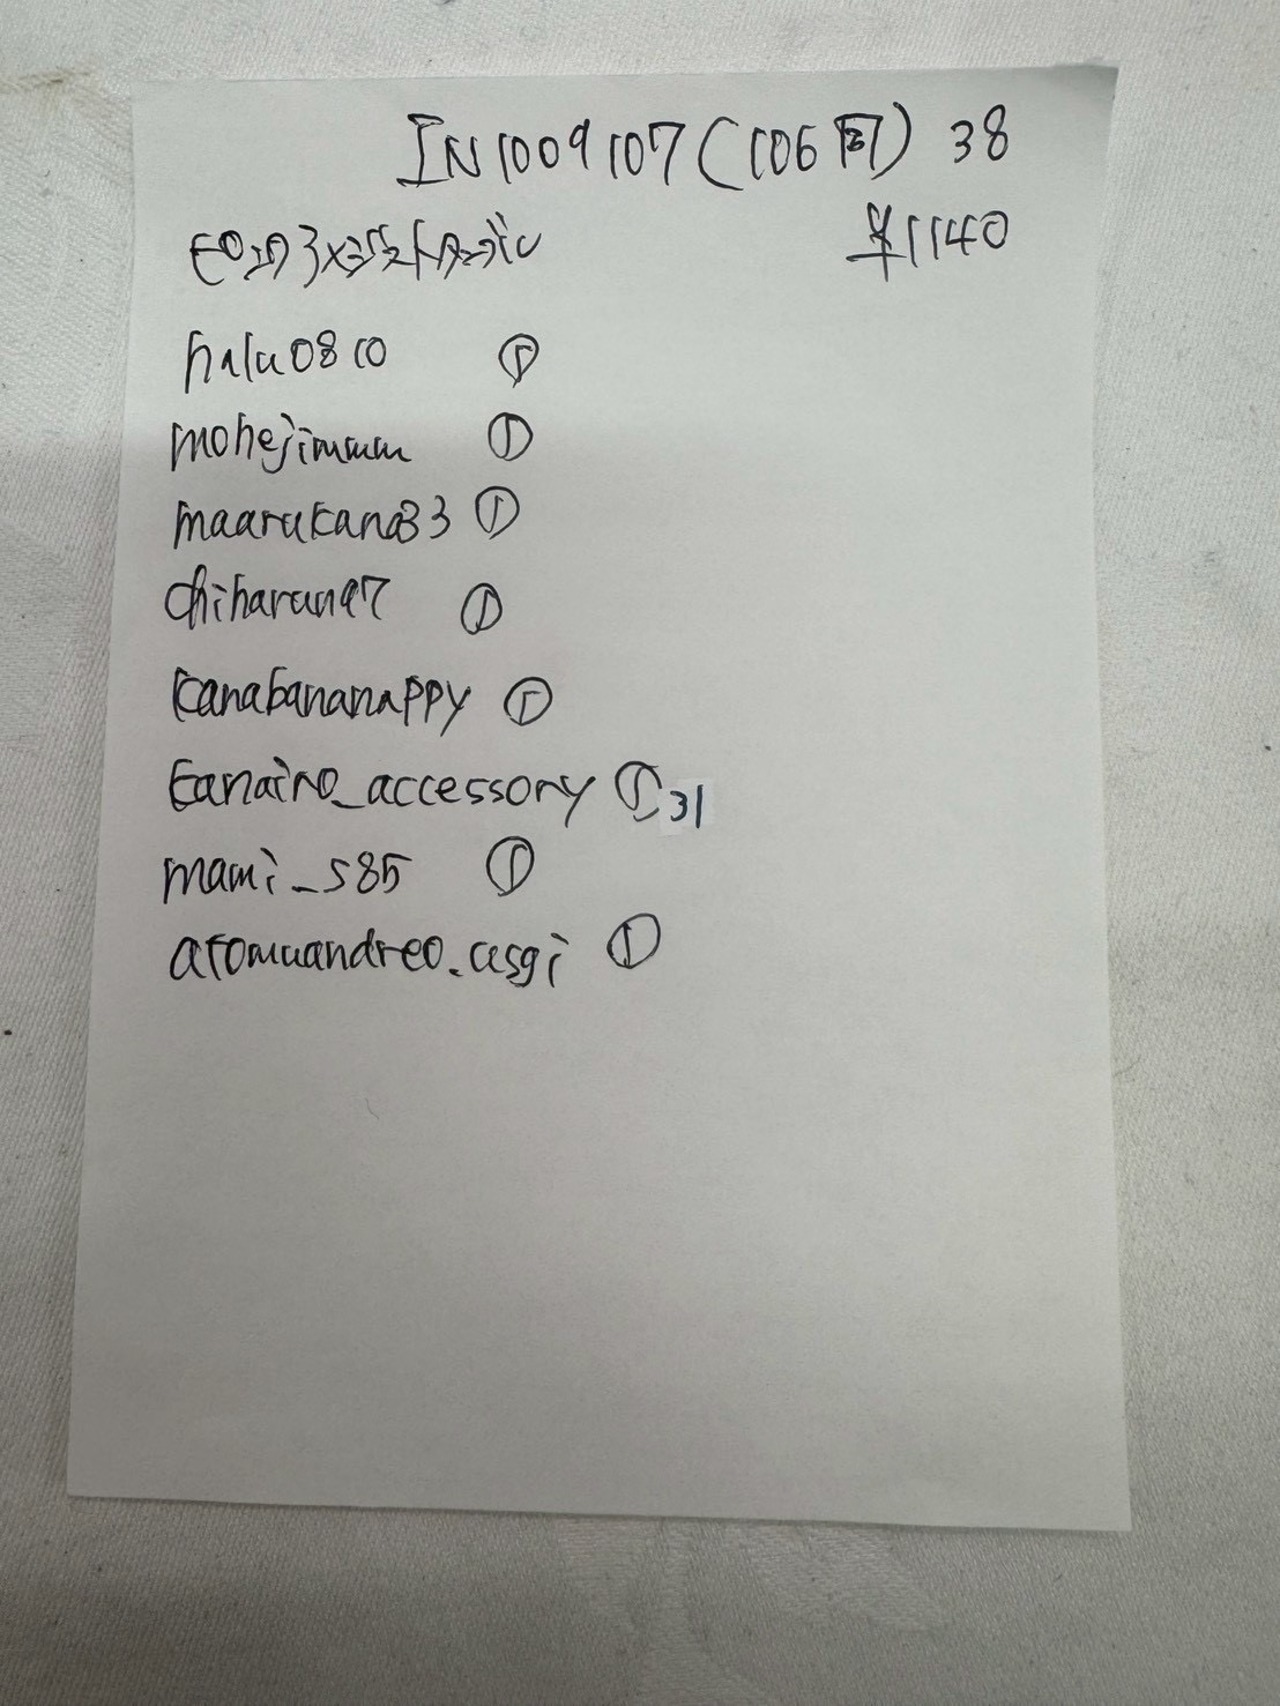 IN1009107(106回) 38
¥1140
halu0810 ①
mohejimmm ①
maarukana33 ①
chiharun97 ①
kanabananappy ①
kanairo_accessory ① 31
mami_s85 ①
atomuandreo.asgi ①